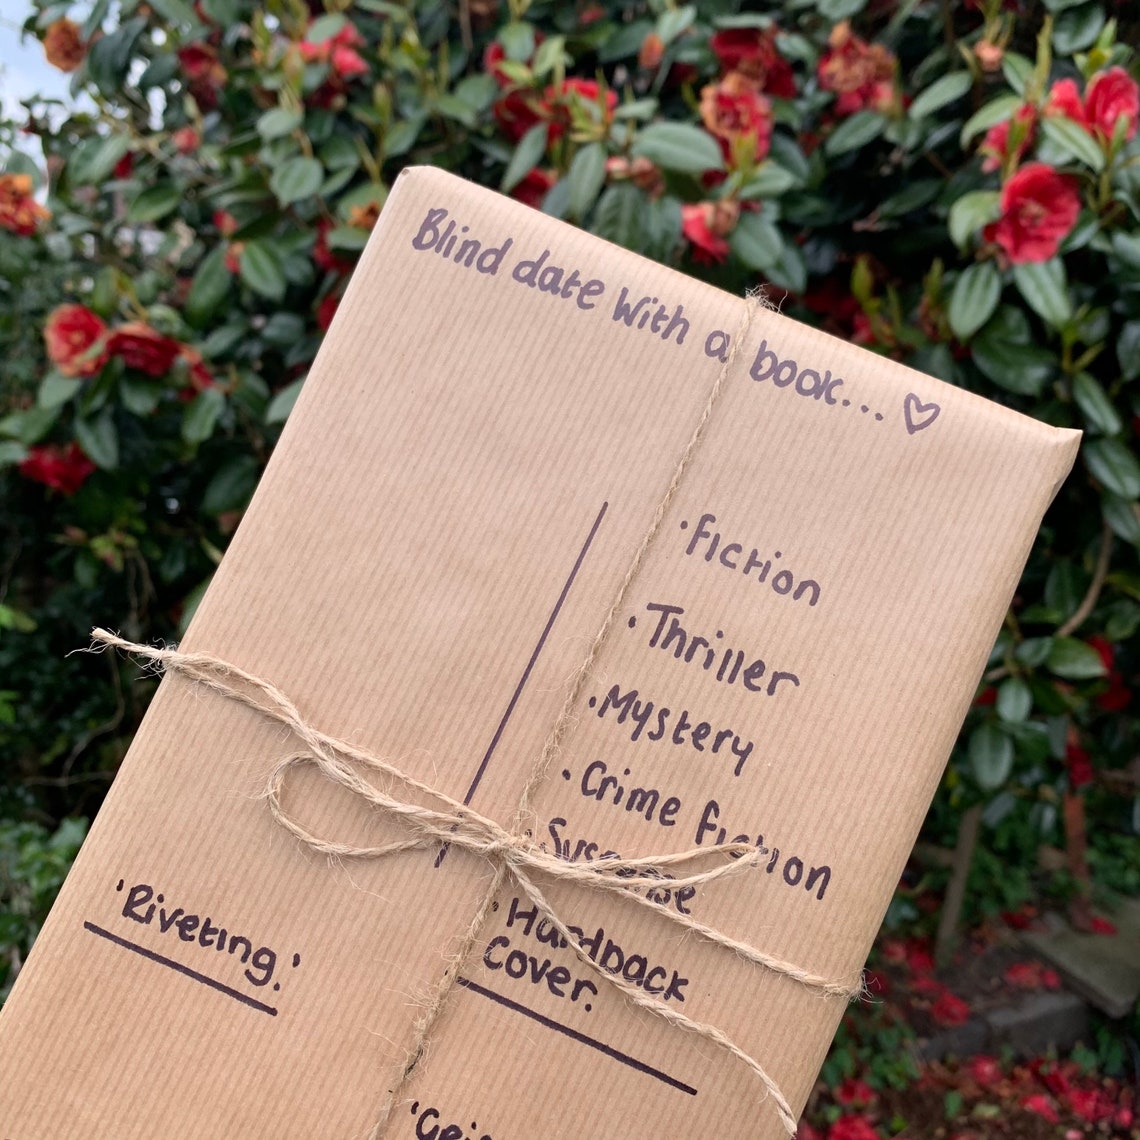 Blind date with a book... ♡
·Fiction
·Thriller
·Mystery
·Crime fiction
·Suspense
·Hardback
Cover.
'Riveting.'